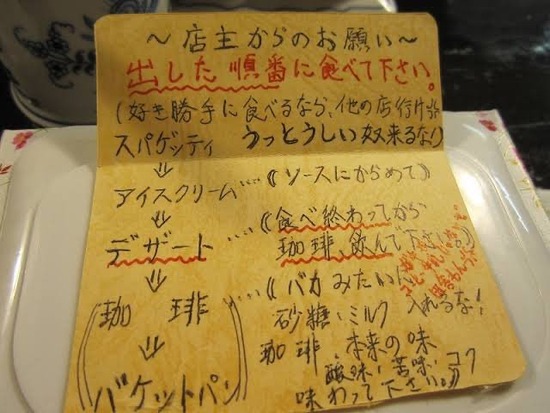 ～店主からのお願い～
出した順番に食べて下さい。
(好き勝手に食べるなら、他の店行け
スパゲッティ うっとうしい奴来るな!)
⇓
アイスクリーム････《ソースにからめて》
⇓
デザート････《食べ終わってから
珈琲、飲んで下さい。》
⇓
珈琲････《バカみたいに
砂糖・ミルク 入れるな!
⇓
珈琲 本来の味
酸味・苦味・コク
バケットパン
味わって下さい。》